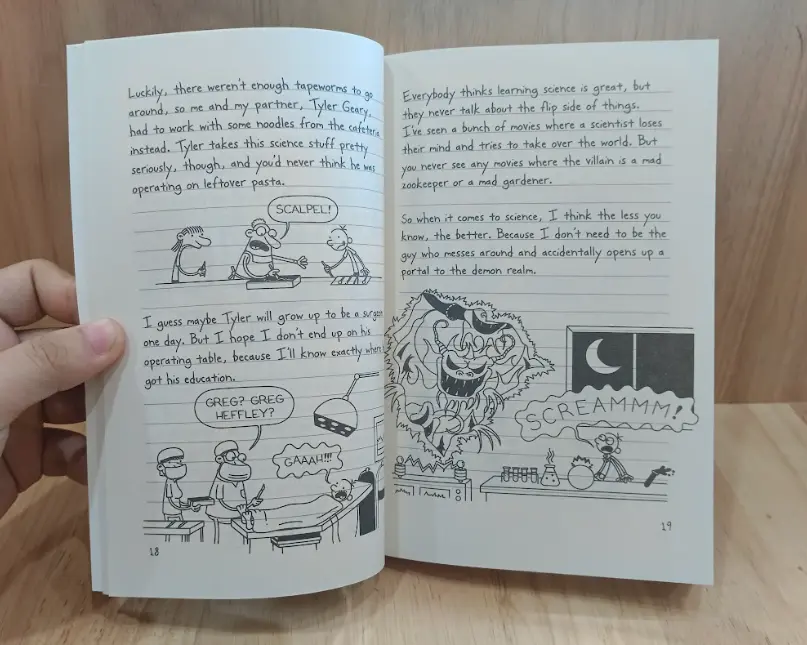 Luckily, there weren't enough tapeworms to go
around, so me and my partner, Tyler Geary,
had to work with some noodles from the cafeteria
instead. Tyler takes this science stuff pretty
seriously, though, and you'd never think he was
operating on leftover pasta.
SCALPEL!
I guess maybe Tyler will grow up to be a surgeon
one day. But I hope I don't end up on his
operating table, because I'll know exactly where
got his education.
GREG? GREG
HEFFLEY?
GAAAH!!!
18
Everybody thinks learning science is great, but
they never talk about the flip side of things.
I've seen a bunch of movies where a scientist loses
their mind and tries to take over the world. But
you never see any movies where the villain is a mad
zookeeper or a mad gardener.
So when it comes to science, I think the less you
know, the better. Because I don't need to be the
guy who messes around and accidentally opens up a
portal to the demon realm.
SCREAMMM!
19